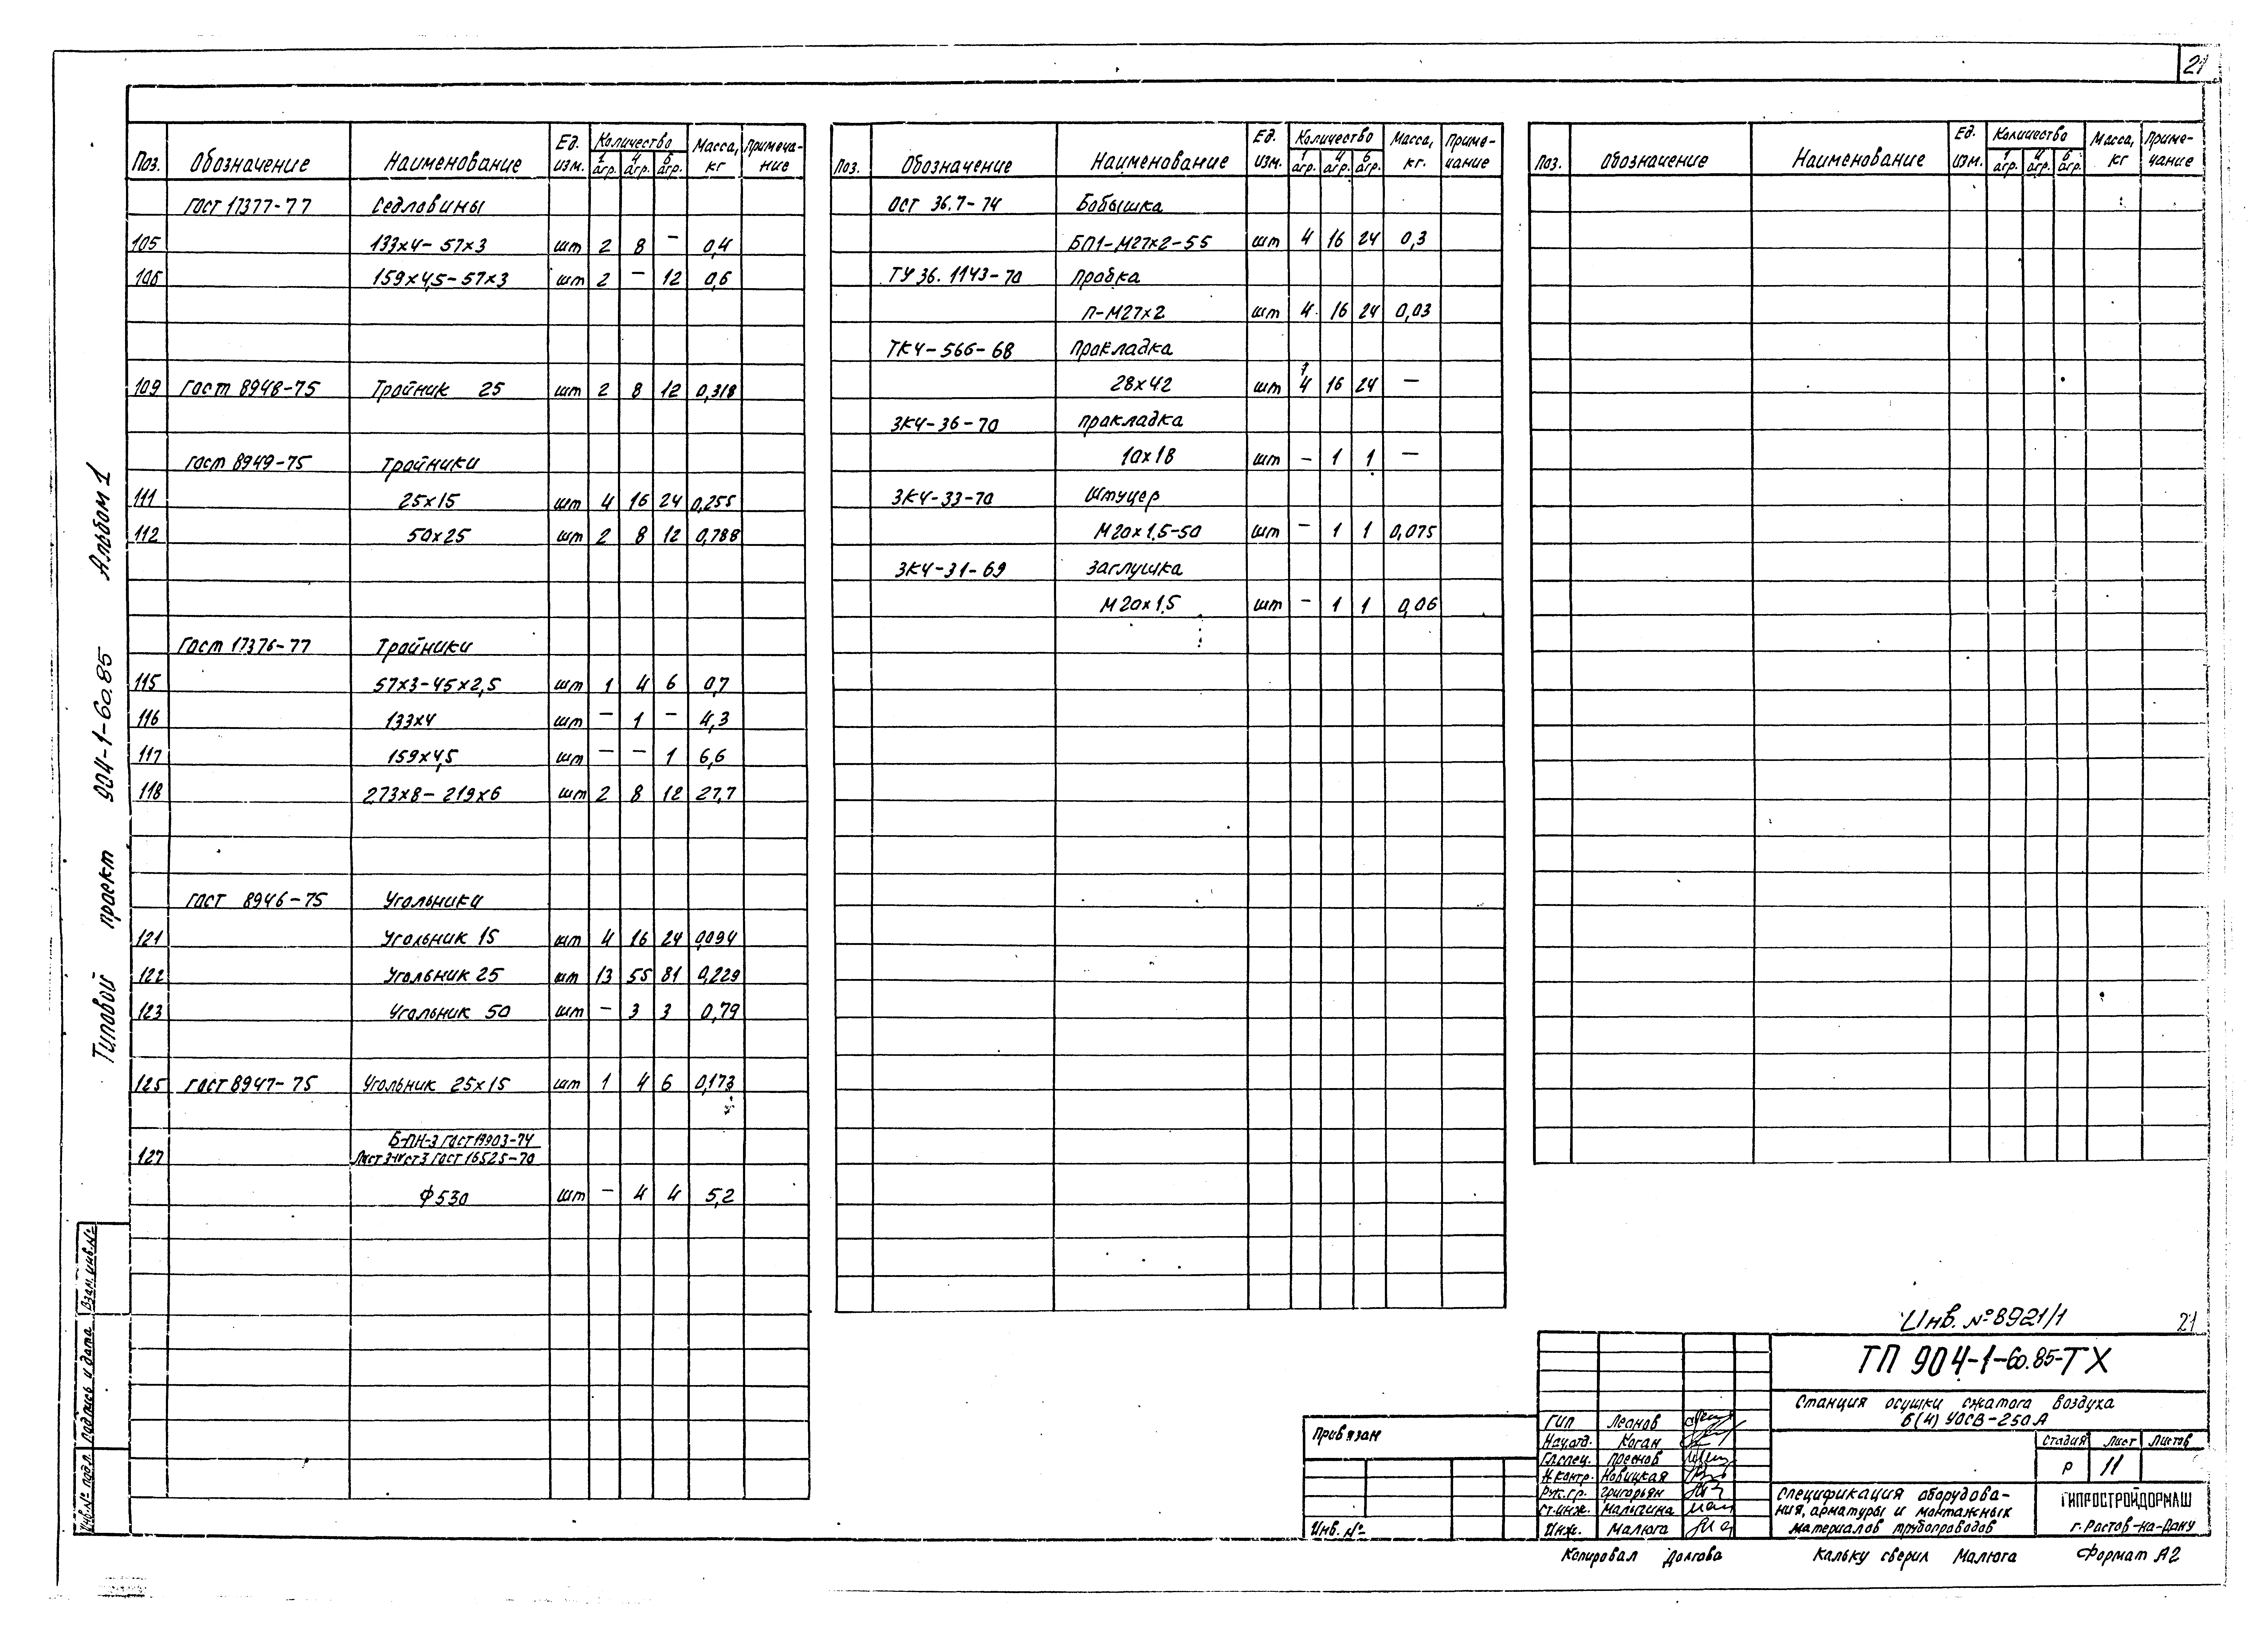 21
Поз. Обозначение Наименование Ед. изм. Количество 1 агр. 4 агр. 6 агр. Масса, кг Примеча-ние
ГОСТ 17377-77 Седловины
105 133х4-57х3 шт 2 8 — 0,4
106 159х4,5-57х3 шт 2 — 12 0,6
109 ГОСТ 8948-75 Тройник 25 шт 2 8 12 0,318
ГОСТ 8949-75 Тройники
111 25х15 шт 4 16 24 0,255
112 50х25 шт 2 8 12 0,788
ГОСТ 17376-77 Тройники
115 57х3-45х2,5 шт 1 4 6 0,7
116 133х4 шт — 1 — 4,3
117 159х4,5 шт — — 1 6,6
118 273х8-219х6 шт 2 8 12 27,7
ГОСТ 8946-75 Угольники
121 Угольник 15 шт 4 16 24 0,094
122 Угольник 25 шт 13 55 81 0,229
123 Угольник 50 шт — 3 3 0,79
125 ГОСТ 8947-75 Угольник 25х15 шт 1 4 6 0,173
Б-ПН-3 ГОСТ 19903-74
127 Лист 3-IVСт3 ГОСТ 16525-70
Ф530 шт — 4 4 5,2
Поз. Обозначение Наименование Ед. изм. Количество 1 агр. 4 агр. 6 агр. Масса, кг. Приме-чание
ОСТ 36.7-74 Бобышка
БП1-М27х2-55 шт 4 16 24 0,3
ТУ 36.1143-70 Пробка
П-М27х2 шт 4 16 24 0,03
ТК4-566-68 Прокладка
28х42 шт 4 16 24 —
ЗК4-36-70 Прокладка
10х18 шт — 1 1 —
ЗК4-33-70 Штуцер
М20х1,5-50 шт — 1 1 0,075
ЗК4-31-69 Заглушка
М20х1,5 шт — 1 1 0,06
Поз. Обозначение Наименование Ед. изм. Количество 1 агр. 4 агр. 6 агр. Масса, кг Приме-чание
Типовой проект 904-1-60.85 Альбом 1
Взам. инв. №
Подпись и дата
Инв. № подл.
Инв. № 8921/1 21
ТП 904-1-60.85-ТХ
Станция осушки сжатого воздуха
6(4) УОСВ-250А
Привязан
Инв. №
ГИП Леонов
Нач.отд. Коган
Гл.спец. Преснов
Н.контр. Новицкая
Рук.гр. Григорьян
Ст.инж. Малыгина
Инж. Малюга
Стадия Лист Листов
Р 11
Спецификация оборудова-
ния, арматуры и монтажных
материалов трубопроводов
ГИПРОСТРОЙДОРМАШ
г. Ростов-на-Дону
Копировал Долгова Кальку сверил Малюга Формат А2